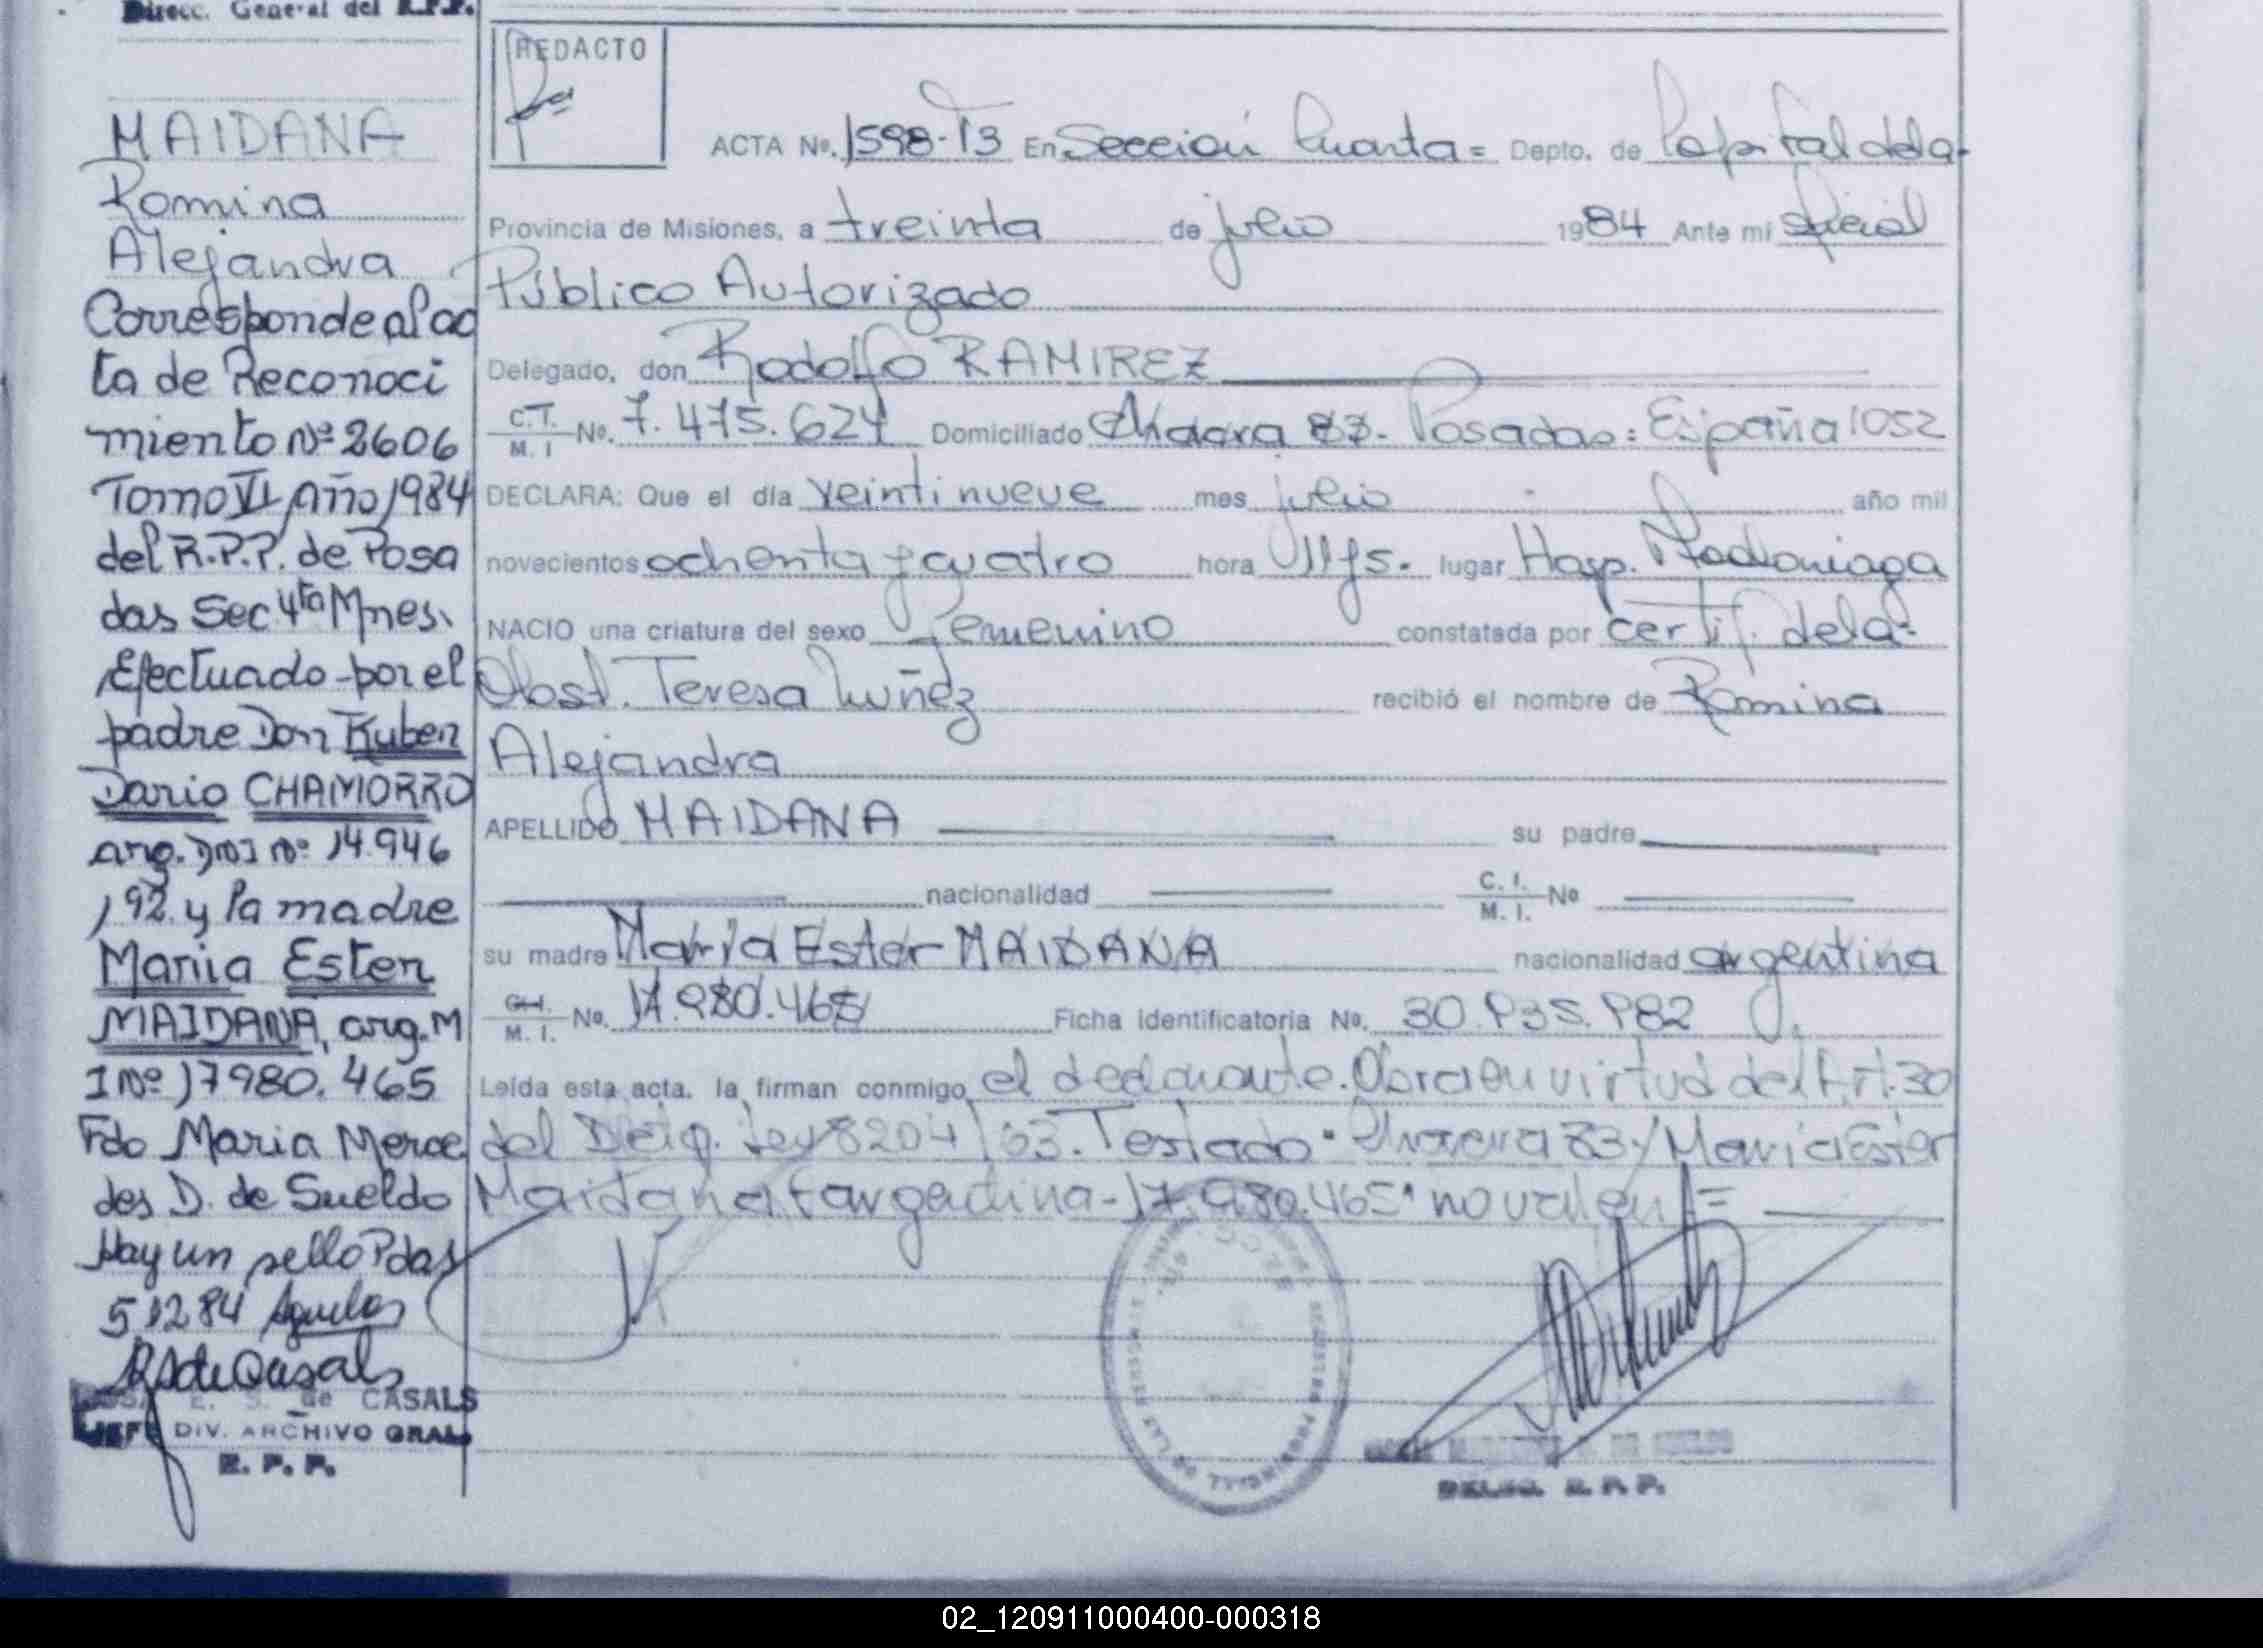 Direcc. General del R.P.P.
MAIDANA
Romina
Alejandra
Corresponde al ac
ta de Reconoci
miento Nº 2606
Tomo VI Año 1984
del R.P.P. de Posa
das Sec. 4ta Mnes.
Efectuado por el
padre Don Ruben
Dario CHAMORRO
arg. DNI Nº 14.946
192. y la madre
Maria Ester
MAIDANA, arg. M
I Nº 17980.465
Fdo Maria Merce
des D. de Sueldo
Hay un sello Pdas
5 12 84
RSdeCasals
E. S. de CASALS
JEFE DIV. ARCHIVO GRAL.
R. P. P.
REDACTO
ACTA Nº. 1598-T3 En Sección Cuarta= Depto. de Capital dela-
Provincia de Misiones, a treinta de julio 1984 Ante mi Oficial
Público Autorizado
Delegado, don Rodolfo RAMIREZ
C.T. M. I No. 7.475.624 Domiciliado Chacra Posadas: España 1052
DECLARA: Que el día veintinueve mes julio año mil
novecientos ochenta y cuatro hora lugar Hosp.
NACIO una criatura del sexo Femenino constatada por certif. dela-
Obst. Teresa Nuñez recibió el nombre de Romina
Alejandra
APELLIDO MAIDANA su padre
nacionalidad C. I. M. I. No
su madre Maria Ester MAIDANA nacionalidad argentina
C.I. M. I. No. 17.980.465 Ficha identificatoria No. 30.935.982
Leída esta acta, la firman conmigo el declarante. Obra en virtud del Art. 30
del Ley 8204/63. Testado Chacra 83 y Maria Ester
Maidana argentina-17.980.465" no valen =
REGISTRO PROVINCIAL DE LAS PERSONAS
DELEG. R. P. P.
02_120911000400-000318